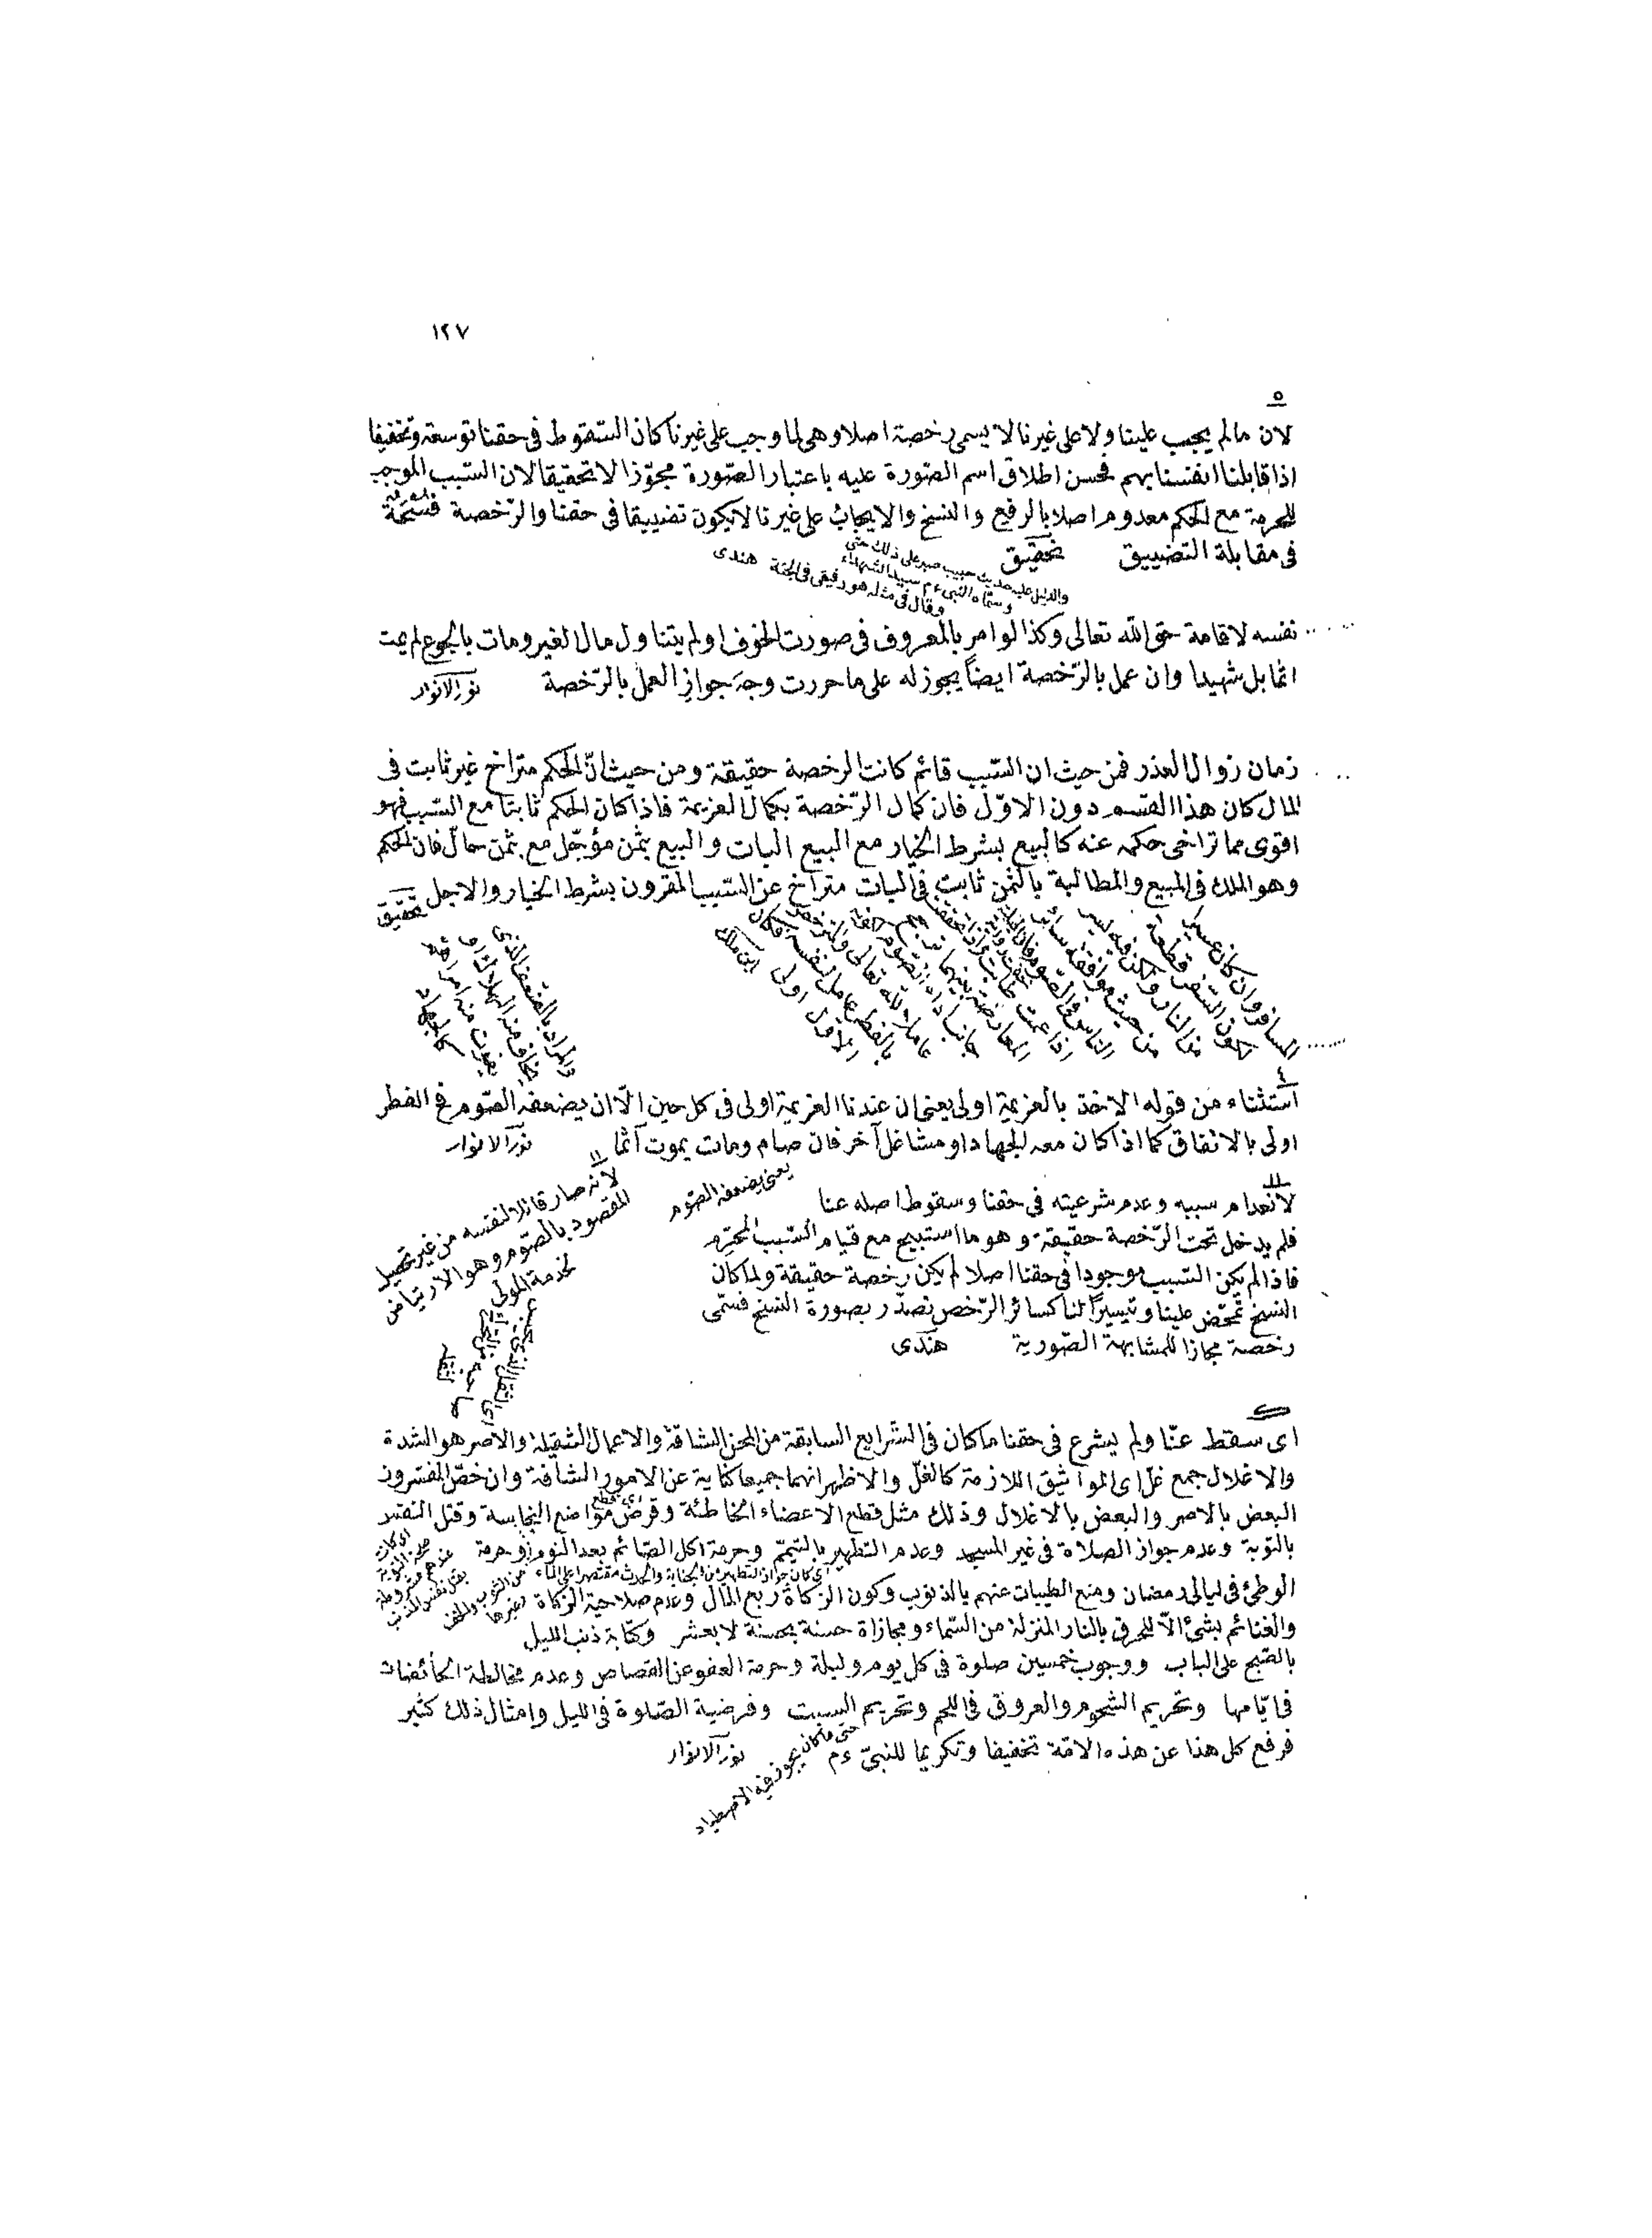 ١٢٧
٥
لان مالم يجب علينا ولا على غيرنا لا يسمى رخصة اصلا وهى لما وجب على غيرنا كان السّقوط فى حقنا توسعة وتخفيفا
اذا قابلنا انفسنا بهم فحسن اطلاق اسم الصّورة عليه باعتبار الصّورة مجوّزا لا تحقيقا لان السّبب الموجب
للحرمة مع الحكم معدوم اصلا بالرفع والنسخ والايجاب على غيرنا لا يكون تضييقا فى حقنا والرّخصة فسحة
فى مقابلة التضييق تحقيق
والدليل عليه حديث حبيب صبر على ذلك حتى
وسمّاه النبى ءم سيد الشهداء
وقال فى مثله هو رفيقى فى الجنة هندى
نفسه لاقامة حق الله تعالى وكذا لو امر بالمعروف فى صورت الخوف او لم يتناول مال الغير ومات بالجوع لم يمت
اثما بل شهيدا وان عمل بالرّخصة ايضاً يجوز له على ما حررت وجهَ جواز العمل بالرّخصة نور الانوار
زمان زوال العذر فمن حيث ان السّبب قائم كانت الرخصة حقيقة ومن حيث انّ الحكم متراخ غير ثابت فى
المال كان هذا القسم دون الاوّل فان كمال الرّخصة بكمال العزيمة فاذا كان الحكم ثابتا مع السّبب فهو
اقوى مما تراخى حكمه عنه كالبيع بشرط الخيار مع البيع البات والبيع بثمن مؤجّل مع بثمن حالّ فان الحكم
وهو الملك فى المبيع والمطالبة بالثمن ثابت فى البات متراخ عن السّبب المقرون بشرط الخيار والاجل تحقيق
المسافر وان كان عسيرا
لكون السّفر قطعة
من النار ولكن فيه يسر
من حيث موافقة سائر
ابن ملك
والمراد بالضعف الذى
يخاف منه الهلاك او
٤
استثناء من قوله الاخذ بالعزيمة اولى يعنى ان عندنا العزيمة اولى فى كل حين الّا ان يضعفه الصّوم فح الفطر
اولى بالاتفاق كما اذا كان معه الجهاد او مشاغل آخر فان صام ومات يموت آثما نور الانوار
يعنى يضعفه الصّوم
١١
لانه صار قاتلا لنفسه من غير تحصيل
المقصود بالصّوم وهو الارتياض
لخدمة المولى
لانعدام سببه وعدم شرعيته فى حقنا وسقوط اصله عنا
فلم يدخل تحت الرّخصة حقيقة وهو ما استبيح مع قيام السّبب المحرّم
فاذا لم يكن السّبب موجودا فى حقنا اصلا لم يكن رخصة حقيقة ولما كان
النسخ تمحّض علينا وتيسيراً لنا كسائر الرّخص تصدّر بصورة النسخ فسمّى
رخصة مجازا للمشابهة الصّورية هندى
اى سقط عنّا ولم يشرع فى حقنا ما كان فى الشّرايع السابقة من المحن الشاقة والاعمال الثقيلة والاصر هو الشدة
والاغلال جمع غلّ اى المواثيق اللازمة كالغلّ والاظهر انهما جميعا كناية عن الامور الشاقة وان خصّ المفسرون
البعض بالاصر والبعض بالاغلال وذلك مثل قطع الاعضاء الخاطئة وقرض مواضع النجاسة وقتل النفس
اى قطع
بالتوبة وعدم جواز الصلاة فى غير المسجد وعدم التطهير بالتيمّم وحرمة اكل الصّائم بعد النوم وحرمة
اى كان جواز التطهير من الجنابة والحدث مقتصرا على الماء
الوطئ فى ليالى رمضان ومنع الطيبات عنهم بالذنوب وكون الزكاة ربع المال وعدم صلاحية الزكاة
والغنائم بشئ الّا للحرق بالنار المنزلة من السّماء ومجازاة حسنة بحسنة لا بعشر وكتابة ذنب الليل
بالصّبح على الباب ووجوب خمسين صلوة فى كل يوم وليلة وحرمة العفو عن القصاص وعدم مخالطة الحائضات
فى ايّامها وتحريم الشحوم والعروق فى اللحم وتحريم السبت وفرضية الصّلوة فى الليل وامثال ذلك كثير
فرفع كل هذا عن هذه الامّة تخفيفا وتكريما للنبىّ ءم نور الانوار
حتى ما كان يجوز فيه الاصطياد